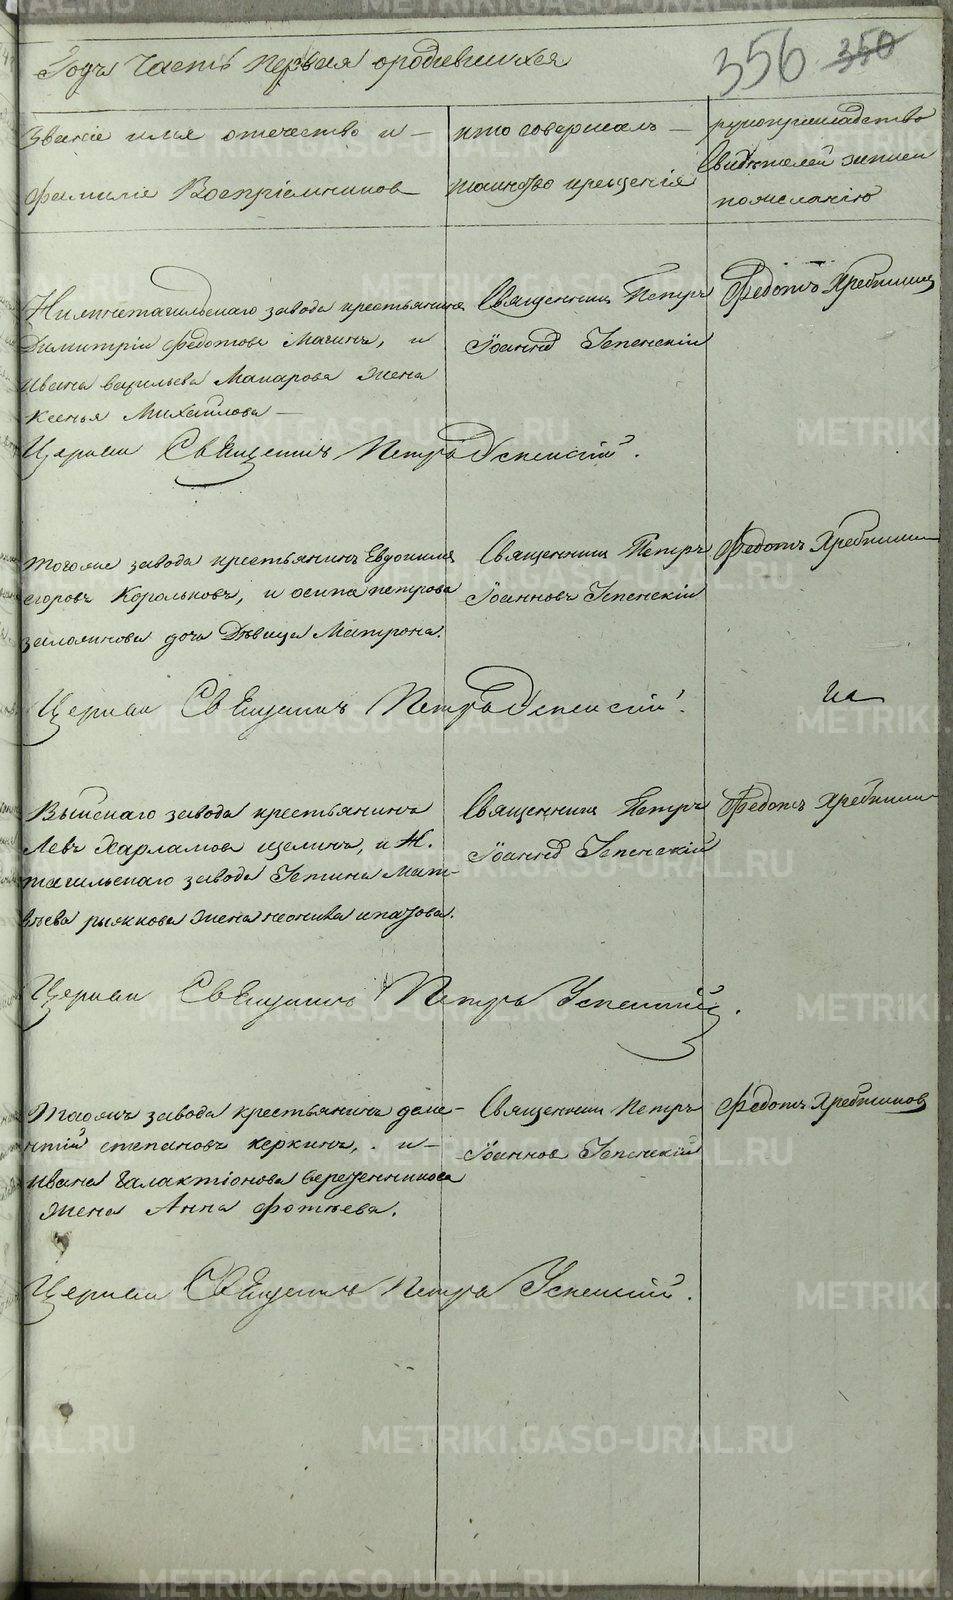 356 350
Годъ Часть первая ородившихся
Званіе имя отечество и —
фамиліе Воспріемниковъ
кто совершалъ —
таинство крещенія
рукоприкладство
Свидѣтелей записи
пожеланію
Нижнетагильскаго завода крестьянинъ
Димитрій Федотовъ Мачинъ, и
Ивана Васильева Макарова Жена
Ксенья Михайлова —
Священникъ Петръ
Іоанновъ Успенскій
Федотъ Хребтиковъ
Церкви Священникъ Петръ Успенскій.
тогоже завода крестьянинъ Евдокимъ
егоровъ Корольковъ, и осипа петрова
дочь Дѣвица Матрона.
Священникъ Петръ
Іоанновъ Успенскій
Федотъ Хребтиковъ
Церкви Священникъ Петръ Успенскій.
Выйскаго завода крестьянинъ
Левъ Харламовъ щелинъ, и Н.
тагильскаго завода Устина Мат-
вѣева жена
Священникъ Петръ
Іоанновъ Успенскій
Федотъ Хребтиковъ
Церкви Священникъ Петръ Успенскій.
завода крестьянинъ деме-
нтій степановъ керкинъ, и —
Ивана Галактіонова березенникова
жена Анна Фотѣева.
Священникъ Петръ
Іоанновъ Успенскій
Федотъ Хребтиковъ
Церкви Священникъ Петръ Успенскій.
METRIKI.GASO-URAL.RU